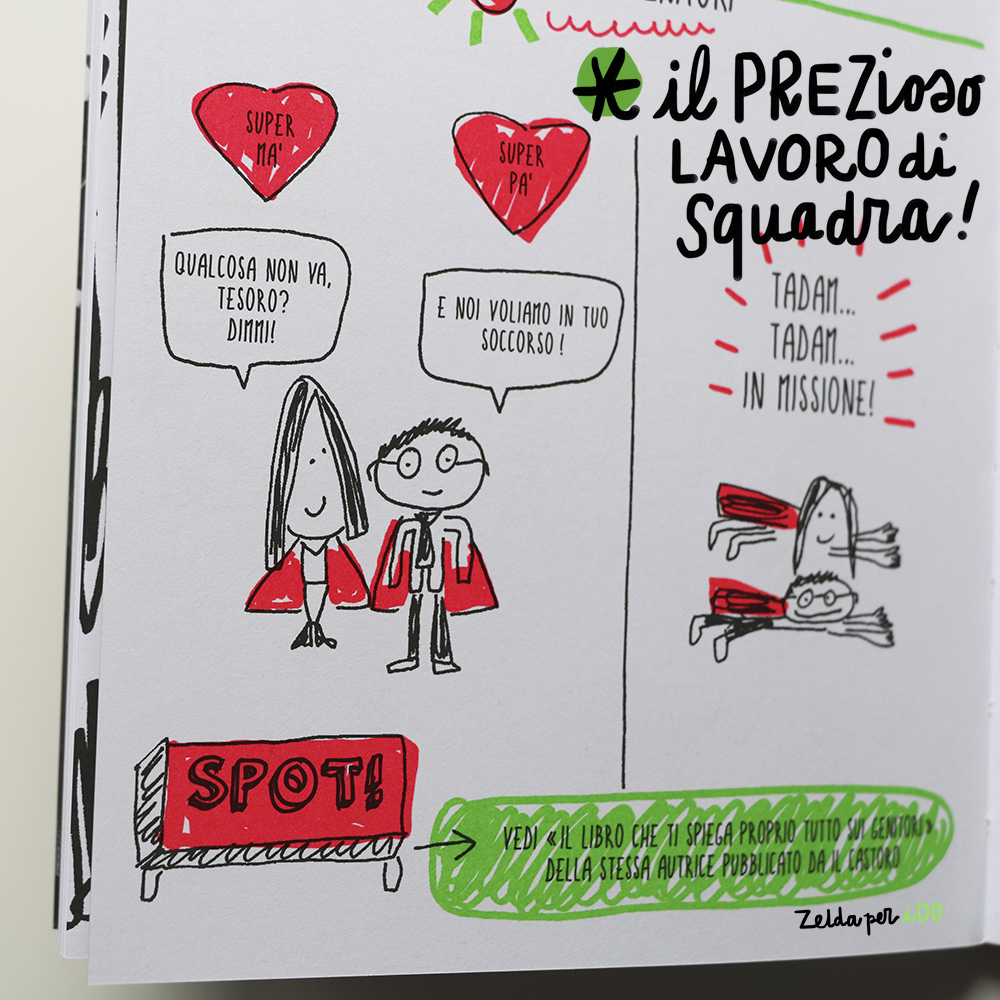 * il PREZioso
LAVORO di
squadra!
SUPER
MA'
SUPER
PA'
QUALCOSA NON VA,
TESORO?
DIMMI!
E NOI VOLIAMO IN TUO
SOCCORSO!
TADAM...
TADAM...
IN MISSIONE!
SPOT!
VEDI «IL LIBRO CHE TI SPIEGA PROPRIO TUTTO SUI GENITORI»
DELLA STESSA AUTRICE PUBBLICATO DA IL CASTORO
Zelda per